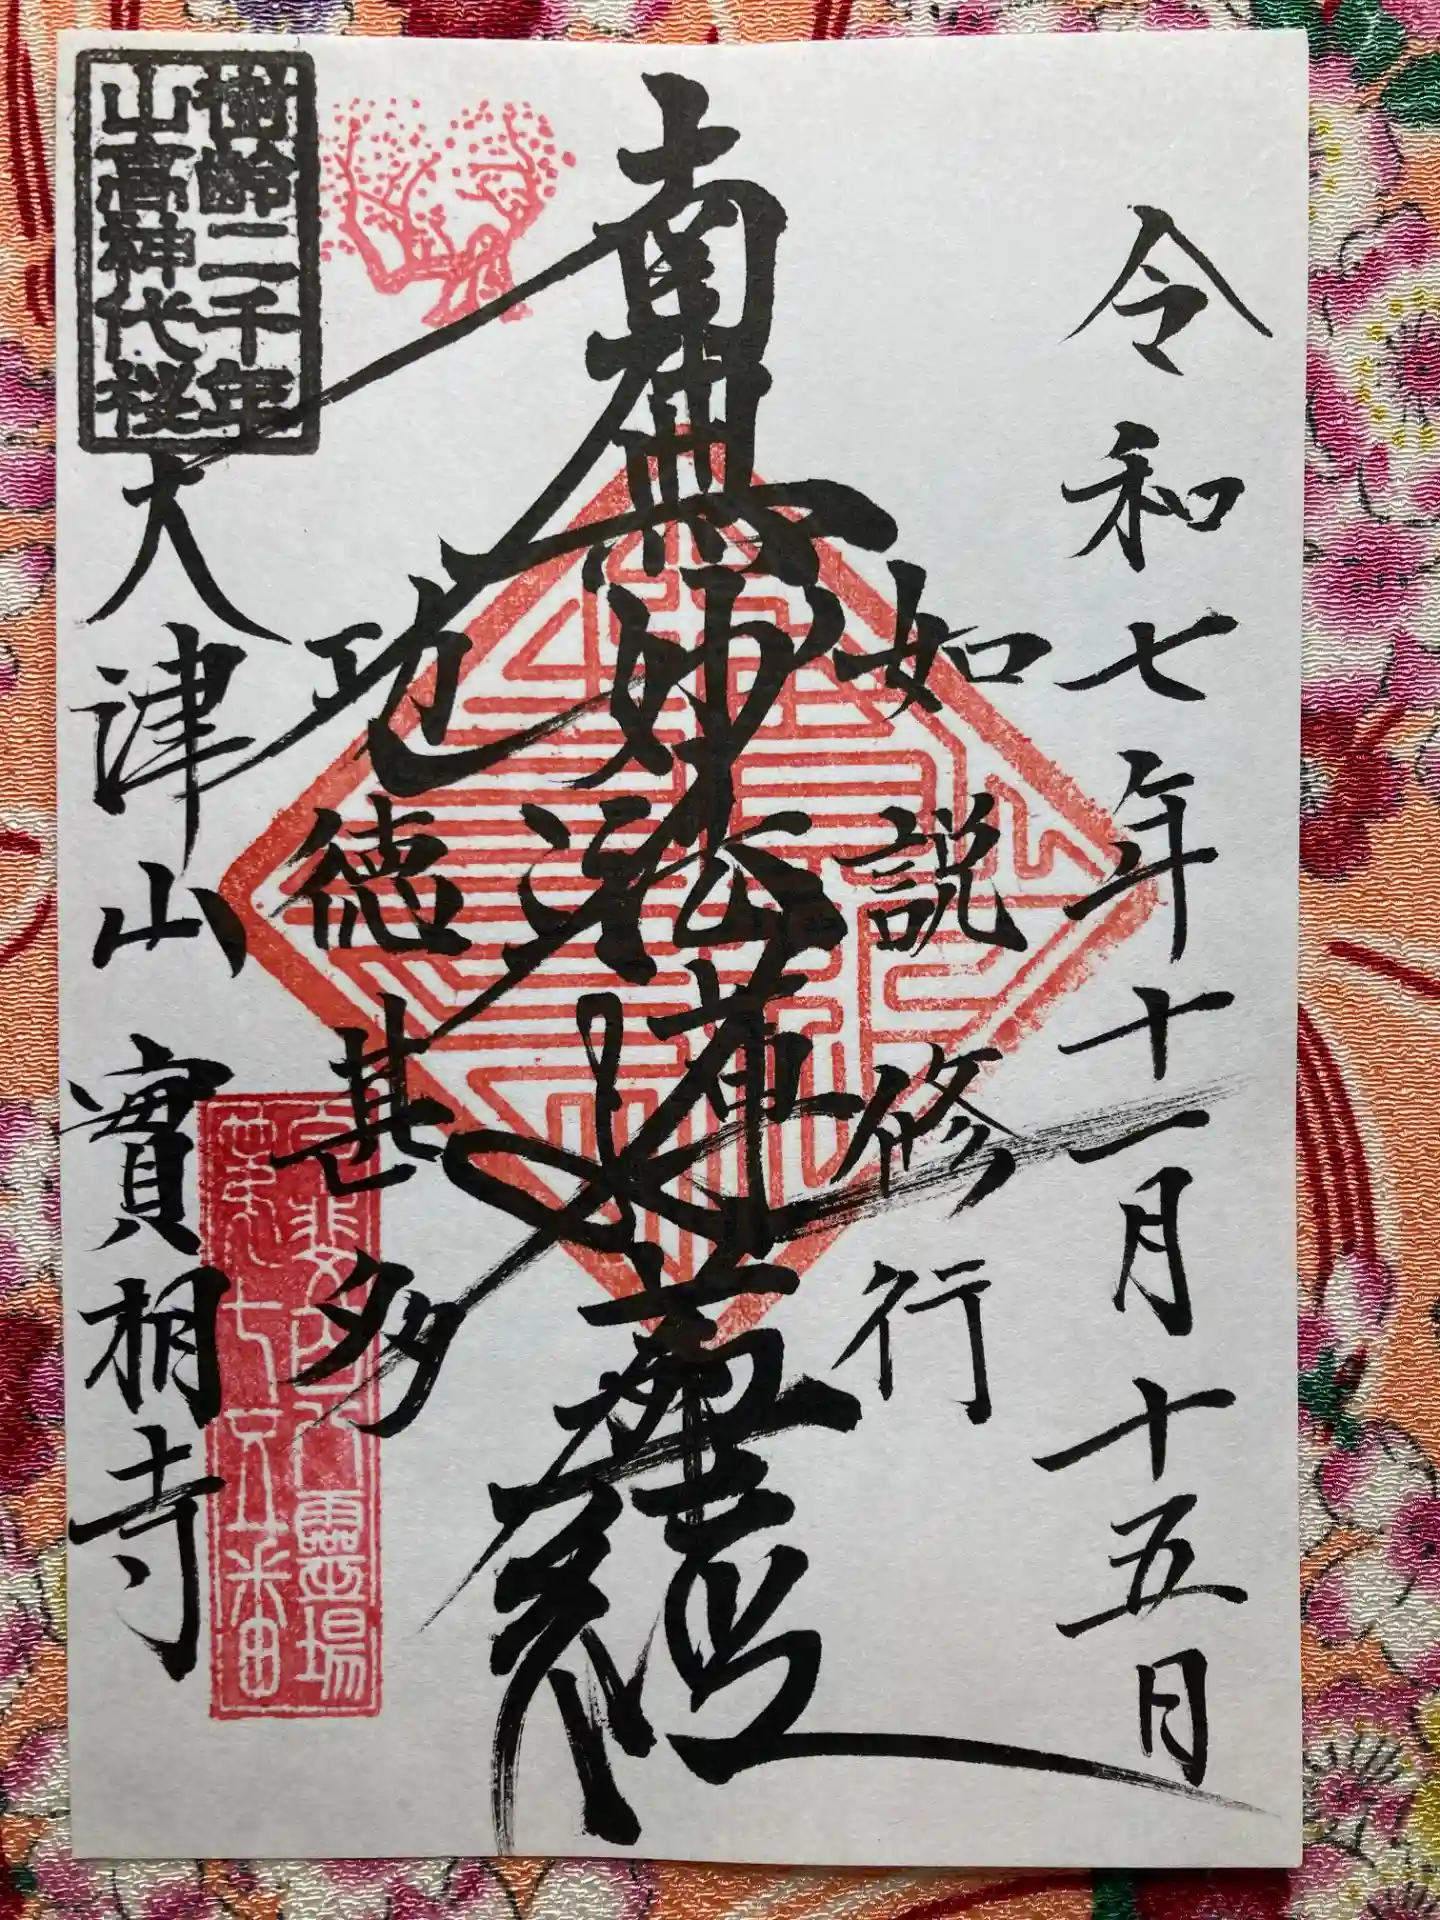 令和七年十一月十五日
如説修行
南無妙法蓮華経
功徳甚多
樹齢二千年
山高神代桜
大津山 實相寺
霊場